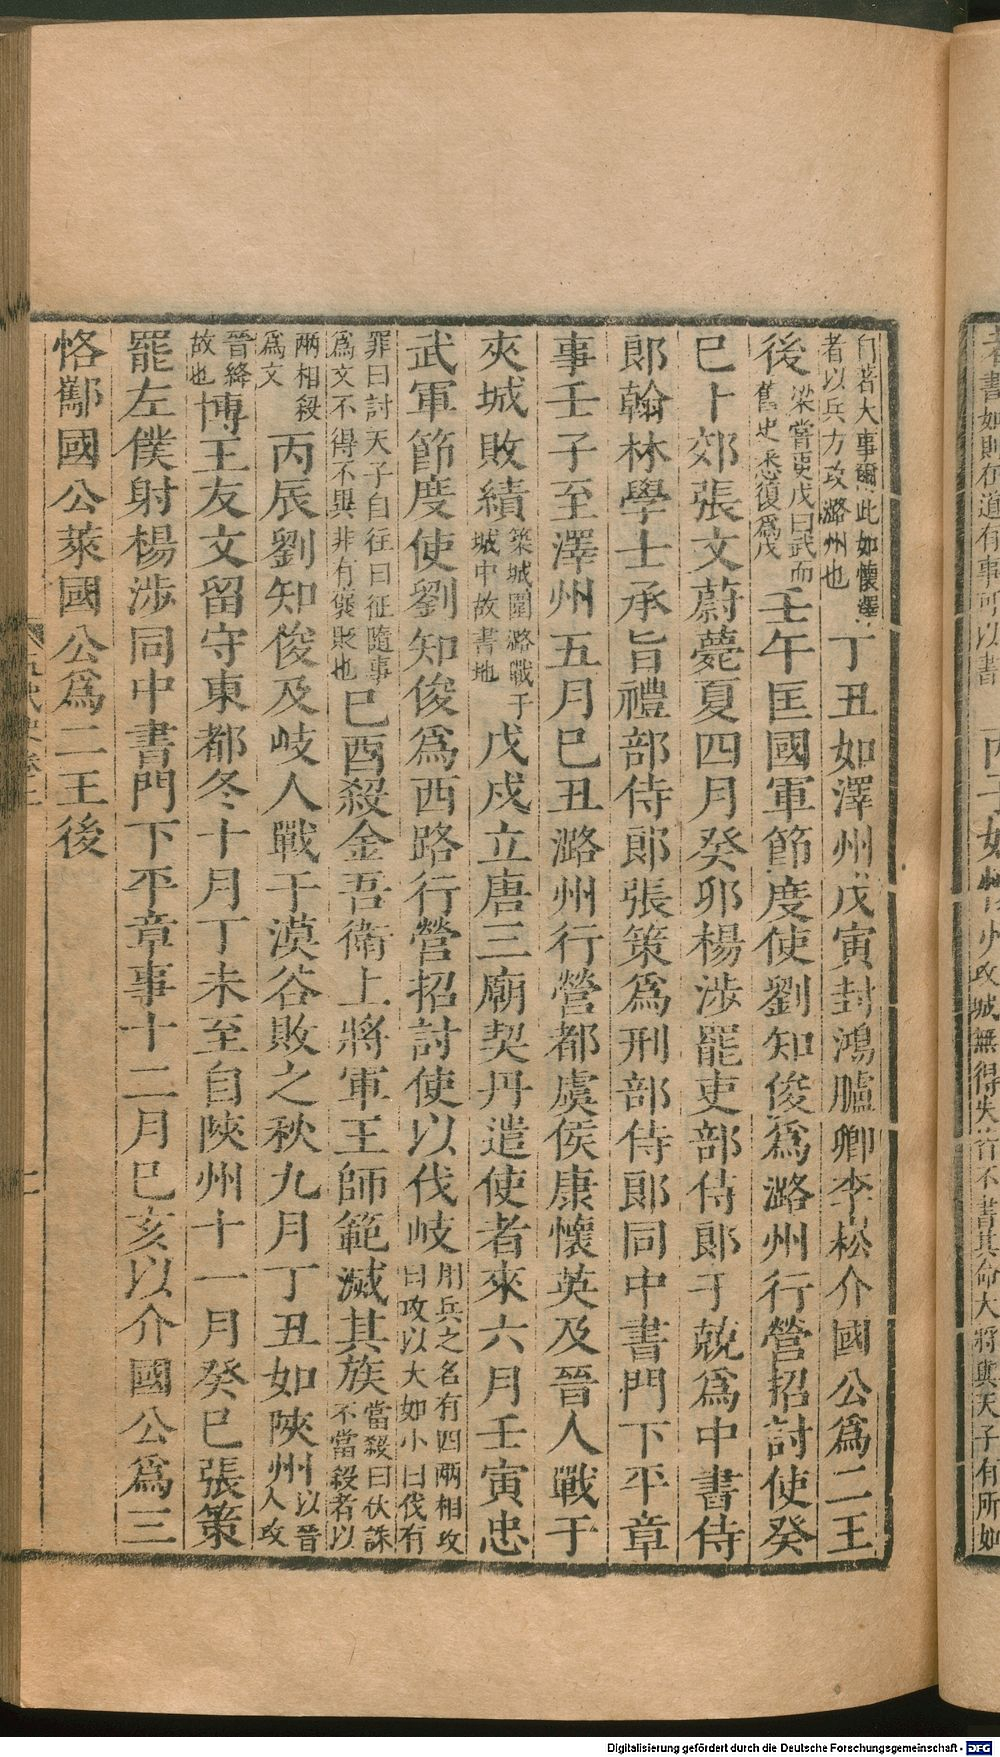 自者大事爾此如懷澤者以兵方攻潞州也丁丑如澤州戊寅封鴻臚卿李崧介國公爲二王
後梁嘗更戊曰武而舊史悉復爲戊壬午匡國軍節度使劉知俊爲潞州行營招討使癸
巳卜郊張文蔚薨夏四月癸卯楊涉罷吏部侍郎于兢爲中書侍
郎翰林學士承旨禮部侍郎張策爲刑部侍郎同中書門下平章
事壬子至澤州五月己丑潞州行營都虞侯康懷英及晉人戰于
夾城敗績築城圍潞戰于城中故書地戊戌立唐三廟契丹遣使者來六月壬寅忠
武軍節度使劉知俊爲西路行營招討使以伐岐用兵之名有四兩相攻曰攻以大如小曰伐有
罪曰討天子自往曰征隨事爲文不得不異非有襃貶也己酉殺金吾衛上將軍王師範滅其族當殺曰伏誅不當殺者以
兩相殺爲文丙辰劉知俊及岐人戰于漠谷敗之秋九月丁丑如陝州以晉人攻
晉絳故也博王友文留守東都冬十月丁未至自陝州十一月癸巳張策
罷左僕射楊涉同中書門下平章事十二月己亥以介國公爲三
恪酅國公萊國公爲二王後
Digitalisierung gefördert durch die Deutsche Forschungsgemeinschaft - DFG